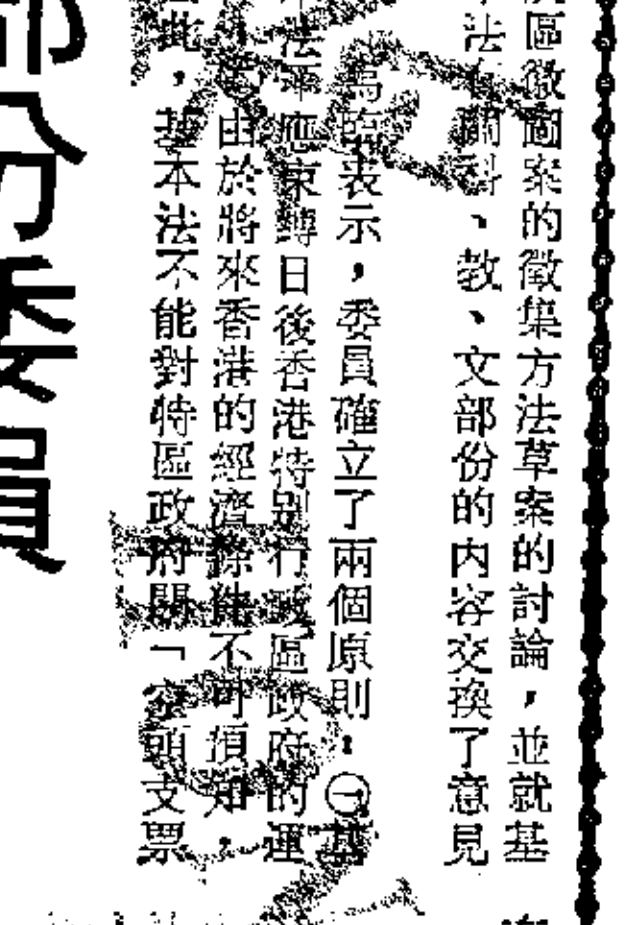 區徽圖案的徵集方法草案的討論，並就基
法有關科、教、文部份的内容交換了意見
馬臨表示，委員確立了兩個原則：㊀基
法不應束縛日後香港特别行政區政府的運
由於將來香港的經濟條件不可預知，
此，基本法不能對特區政府開「空頭支票
部份委員